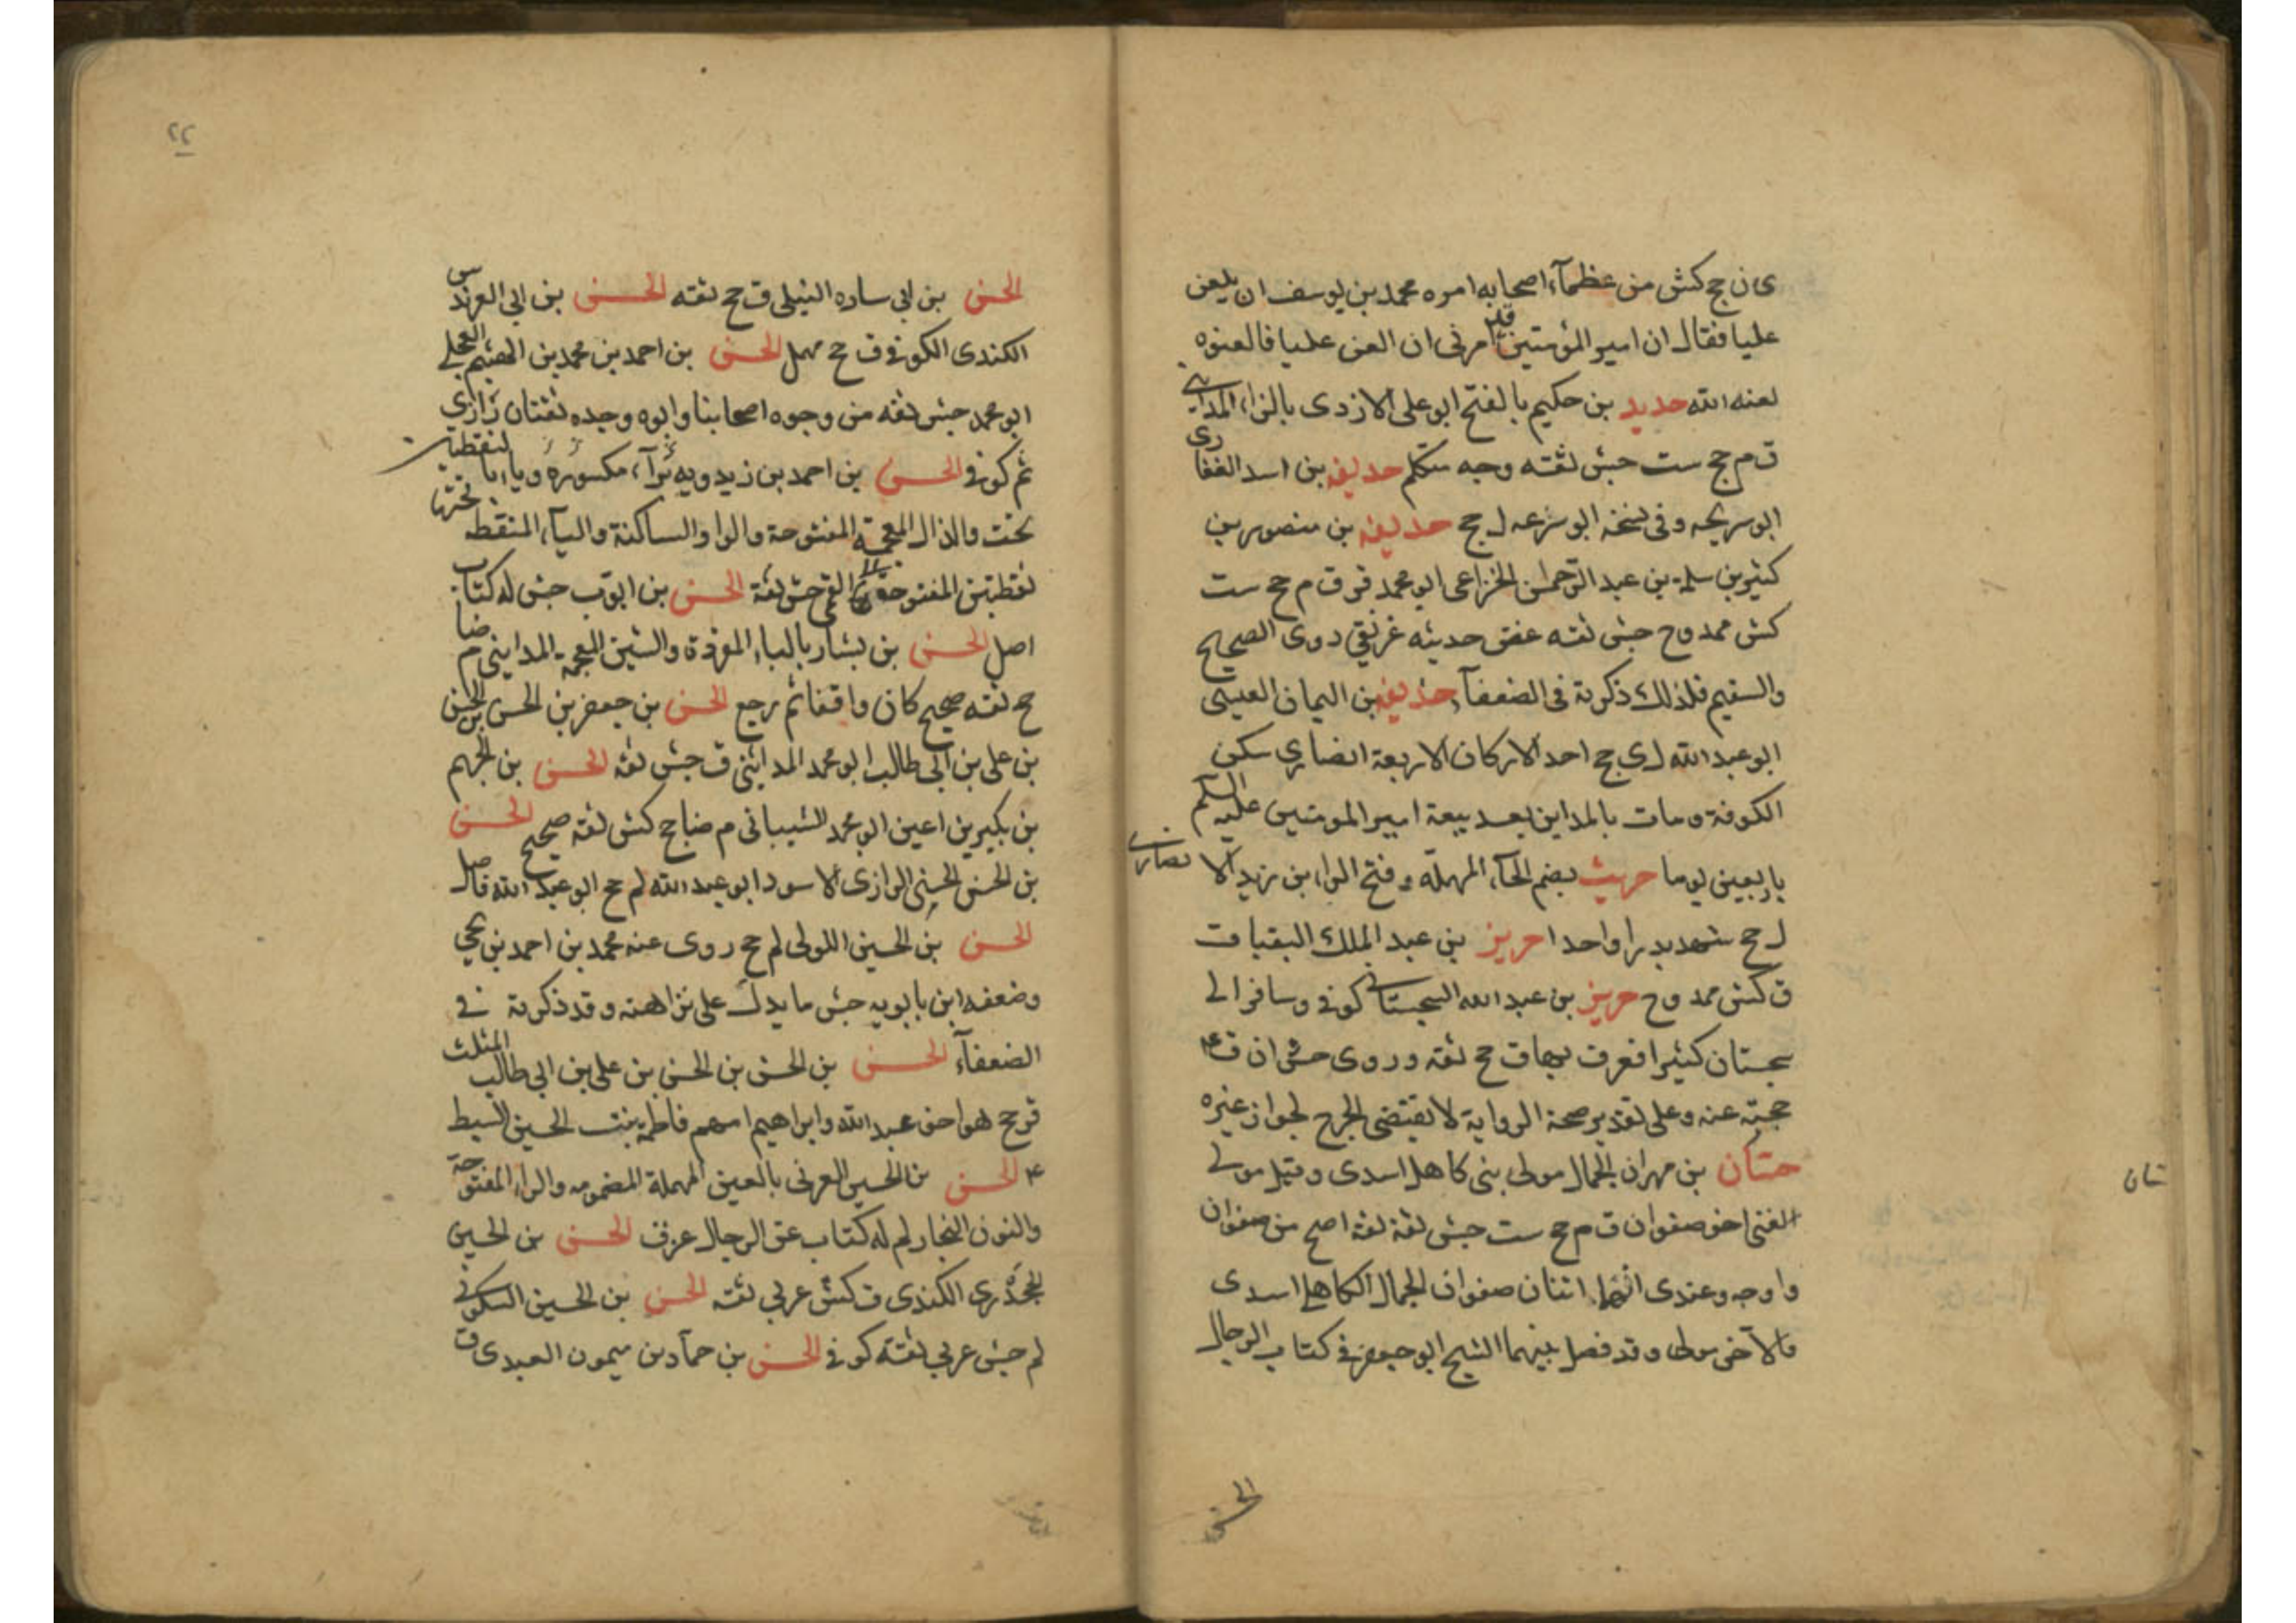 ى ن جج كش من عظمآء اصحابه امره محمد بن يوسف ان يلعن
عليا فقال ان امير المؤمنين امرنى ان العن عليا فالعنوه
لعنه الله حديد بن حكيم بالفتح ابو على الازدى بالزاء المداينى
ق م جج ست جش ثقته وجه متكلم حذيفه بن اسد الغفارى
ابو سريحه وفى نسخة ابو سرعه ل جج حذيفه بن منصور بن
كثير بن سلمة بن عبد الرحمن الخزاعى ابو محمد قر ق م جج ست
كش ممدوح جش ثقته عض حديثه غر نقى روى الصحيح
والسقيم فلذلك ذكرته فى الضعفآء حذيفه بن اليمان العبسى
ابو عبد الله ل ى جج احد الاركان الاربعة انصارى سكن
الكوفة ومات بالمداين بعد بيعة امير المومنين عليه السلم
باربعين يوما حريث بضم الحآء المهملة وفتح الراء بن زيد الا نصارى
ل جج شهد بدرا واحدا حريز بن عبد الملك البقباق
ق كش ممدوح حريز بن عبد الله السجستانى كوفى وسافر الى
سجستان كثيرا فعرف بها ق جج ثقه وروى جش ان ق ع
حجبه عنه وعلى تقدير صحة الرواية لا يقتضى الجرح لجواز غيره
حسان بن مهران الجمال مولى بنى كاهل اسدى وقيل مولى
الغنى اخو صفوان ق م جج ست جش ثقة ثقة اصح من صفوان
واوجه وعندى انهما اثنان صفوان الجمال الكاهلى اسدى
والآخر مولى وقد فصل بينهما الشيخ ابو جعفر فى كتاب الرجال
الحسن
٢٢
الحسن بن ابى ساره النيلى ق جج ثقته الحسن بن ابى العرندس
الكندى الكوفى ق جج مهمل الحسن بن احمد بن محمد بن الهيثم العجلى
ابو محمد جش ثقه من وجوه اصحابنا وابوه وجده ثقتان رازى
ثم كوفى الحسن بن احمد بن زيدويه بزآء مكسوره وياء بنقطتين
تحت والذال المعجمة المفتوحة والواو الساكنة واليآء المنقطه تحتها
نقطتين المفتوحة القمى جش ثقة الحسن بن ايوب جش له كتاب
اصل الحسن بن بشار بالباء المفردة والشين المعجمه المداينى م ضا
جج ثقه صحيح كان واقفا ثم رجع الحسن بن جعفر بن الحسن بن الحسن
بن على بن ابى طالب ابو محمد المداينى ق جش ثقه الحسن بن الجهم
بن بكير بن اعين ابو محمد الشيبانى م ضا جج كش ثقة صحيح الحسن
بن الحسن الحسنى الرازى الاسود ابو عبد الله لم جج ابو عبد الله فاضل
الحسن بن الحسين اللولى لم جج روى عنه محمد بن احمد بن يحيى
وضعفه ابن بابويه جش ما يدل على نزاهته وقد ذكرته فى
الضعفآء الحسن بن الحسن بن الحسن بن على بن ابى طالب المثلث
قر جج هو اخو عبد الله وابراهيم امهم فاطمة بنت الحسين السبط
ع الحسن بن الحسين العرنى بالعين المهملة المضمومه والراء المفتوحة
والنون النجار لم له كتاب عن الرجال عن ق الحسن بن الحسين
الجحدرى الكندى ق كش عربى ثقته الحسن بن الحسين السكونى
لم جش عربى ثقته كوفى الحسن بن حماد بن ميمون العبدى ق